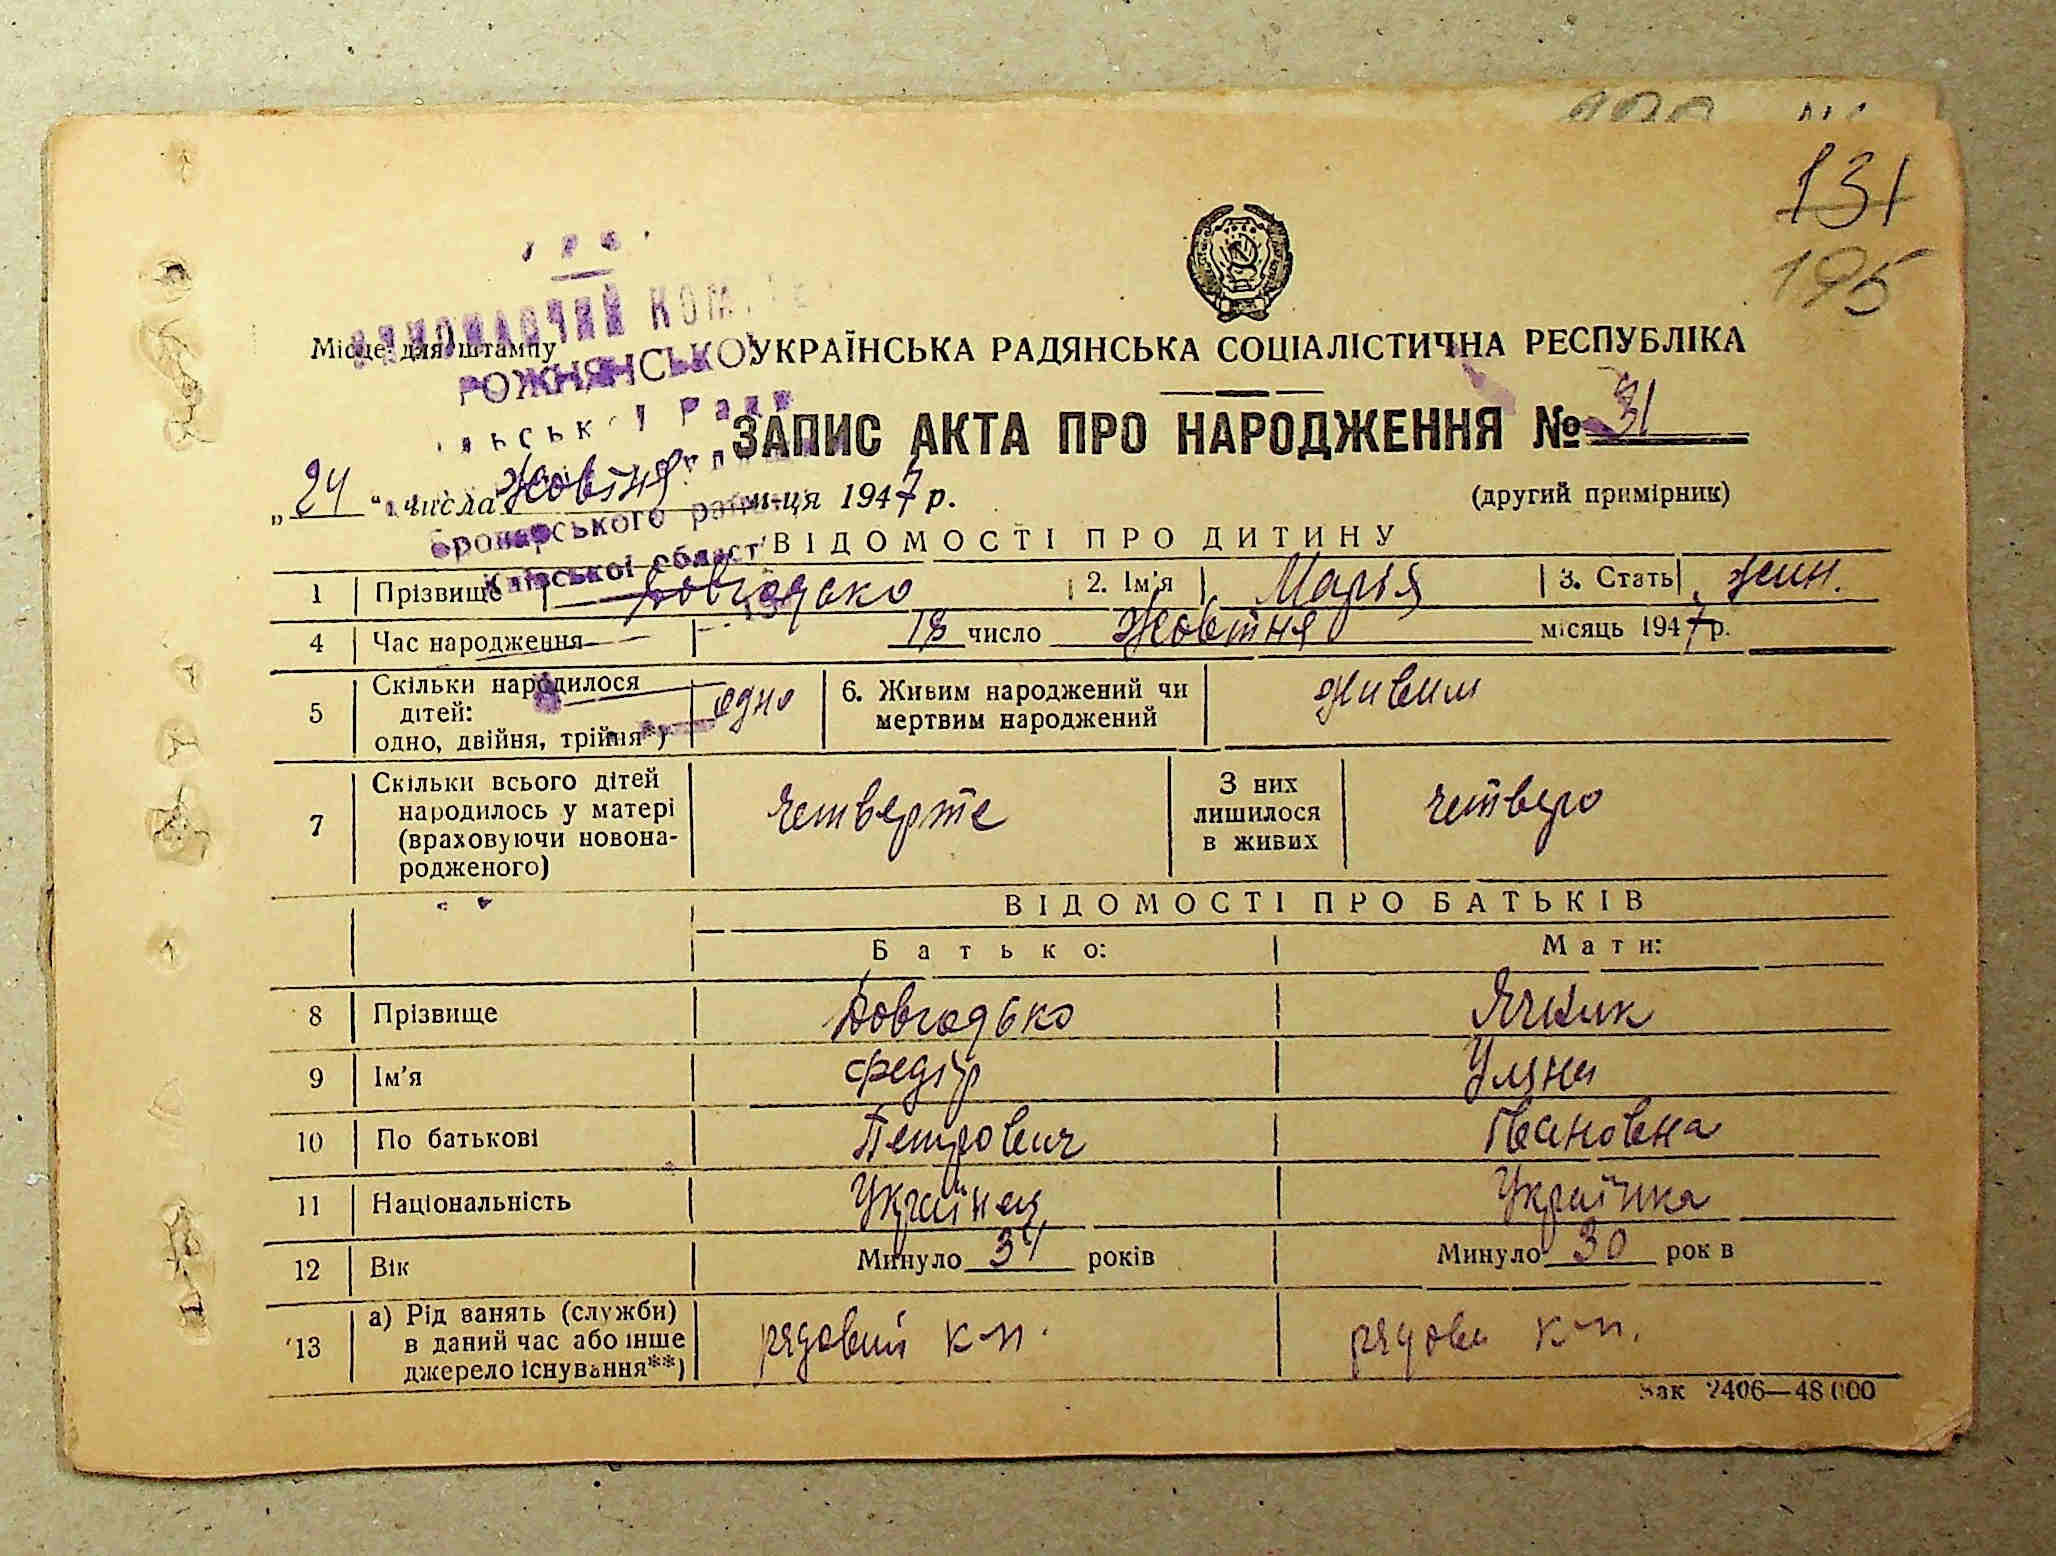 131
195
Місце для штампу
УРСР
ВИКОНАВЧИЙ КОМІТЕТ
РОЖНЯНСЬКОЇ
сільської Ради
Броварського району
Київської області
УКРАЇНСЬКА РАДЯНСЬКА СОЦІАЛІСТИЧНА РЕСПУБЛІКА
ЗАПИС АКТА ПРО НАРОДЖЕННЯ № 31
„24“ числа Жовтня м-ця 1947 р.
(другий примірник)
ВІДОМОСТІ ПРО ДИТИНУ
1 Прізвище Довгодько 2. Ім'я Марія 3. Стать жін.
4 Час народження 18 число Жовтня місяць 1947 р.
5 Скільки народилося
дітей:
одно, двійня, трійня*) одно
6. Живим народжений чи
мертвим народжений живим
7 Скільки всього дітей
народилось у матері
(враховуючи новона-
родженого) четверте
З них
лишилося
в живих четверо
ВІДОМОСТІ ПРО БАТЬКІВ
Батько: Мати:
8 Прізвище Довгодько Ячник
9 Ім'я Федір Уляна
10 По батькові Петрович Івановна
11 Національність Українец Українка
12 Вік Минуло 34 років Минуло 30 років
13 а) Рід занять (служби)
в даний час або інше
джерело існування**) рядовий к-п. рядова к-п.
Зак 2406—48 000